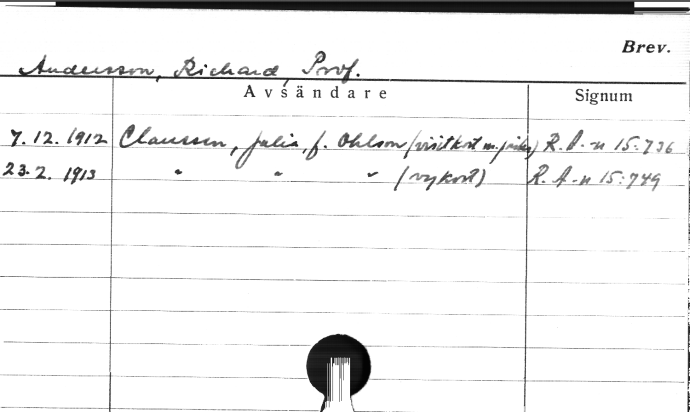 Brev.
Andersson, Richard, Prof.
Avsändare Signum
7.12.1912 Claussen, Julia, f. Ohlson (visitkort m. R.A.-n 15:736
23.2.1913 " " " (vykort) R.A.-n 15:749